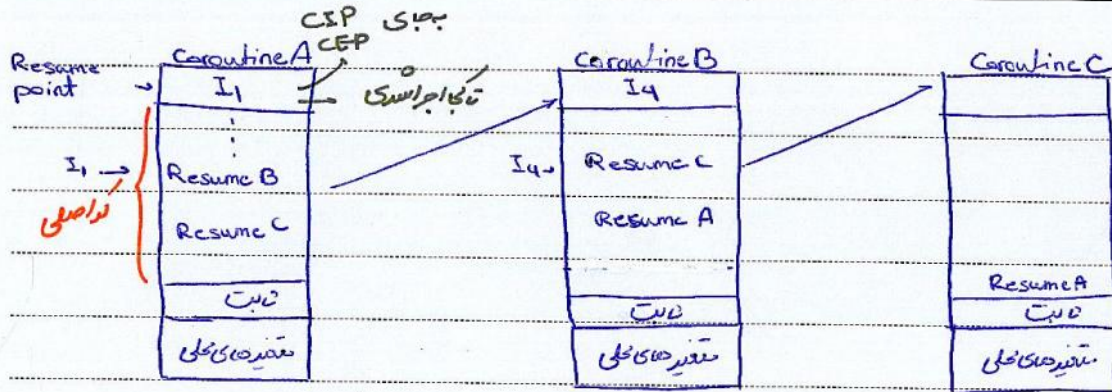 بجای CIP
CEP
Resume point
Coroutine A
I₁
تا کجا اجرا شدی
I₁
کد اصلی
Resume B
Resume C
ثابت
متغیرهای محلی
Coroutine B
I₄
I₄
Resume C
Resume A
ثابت
متغیرهای محلی
Coroutine C
Resume A
ثابت
متغیرهای محلی